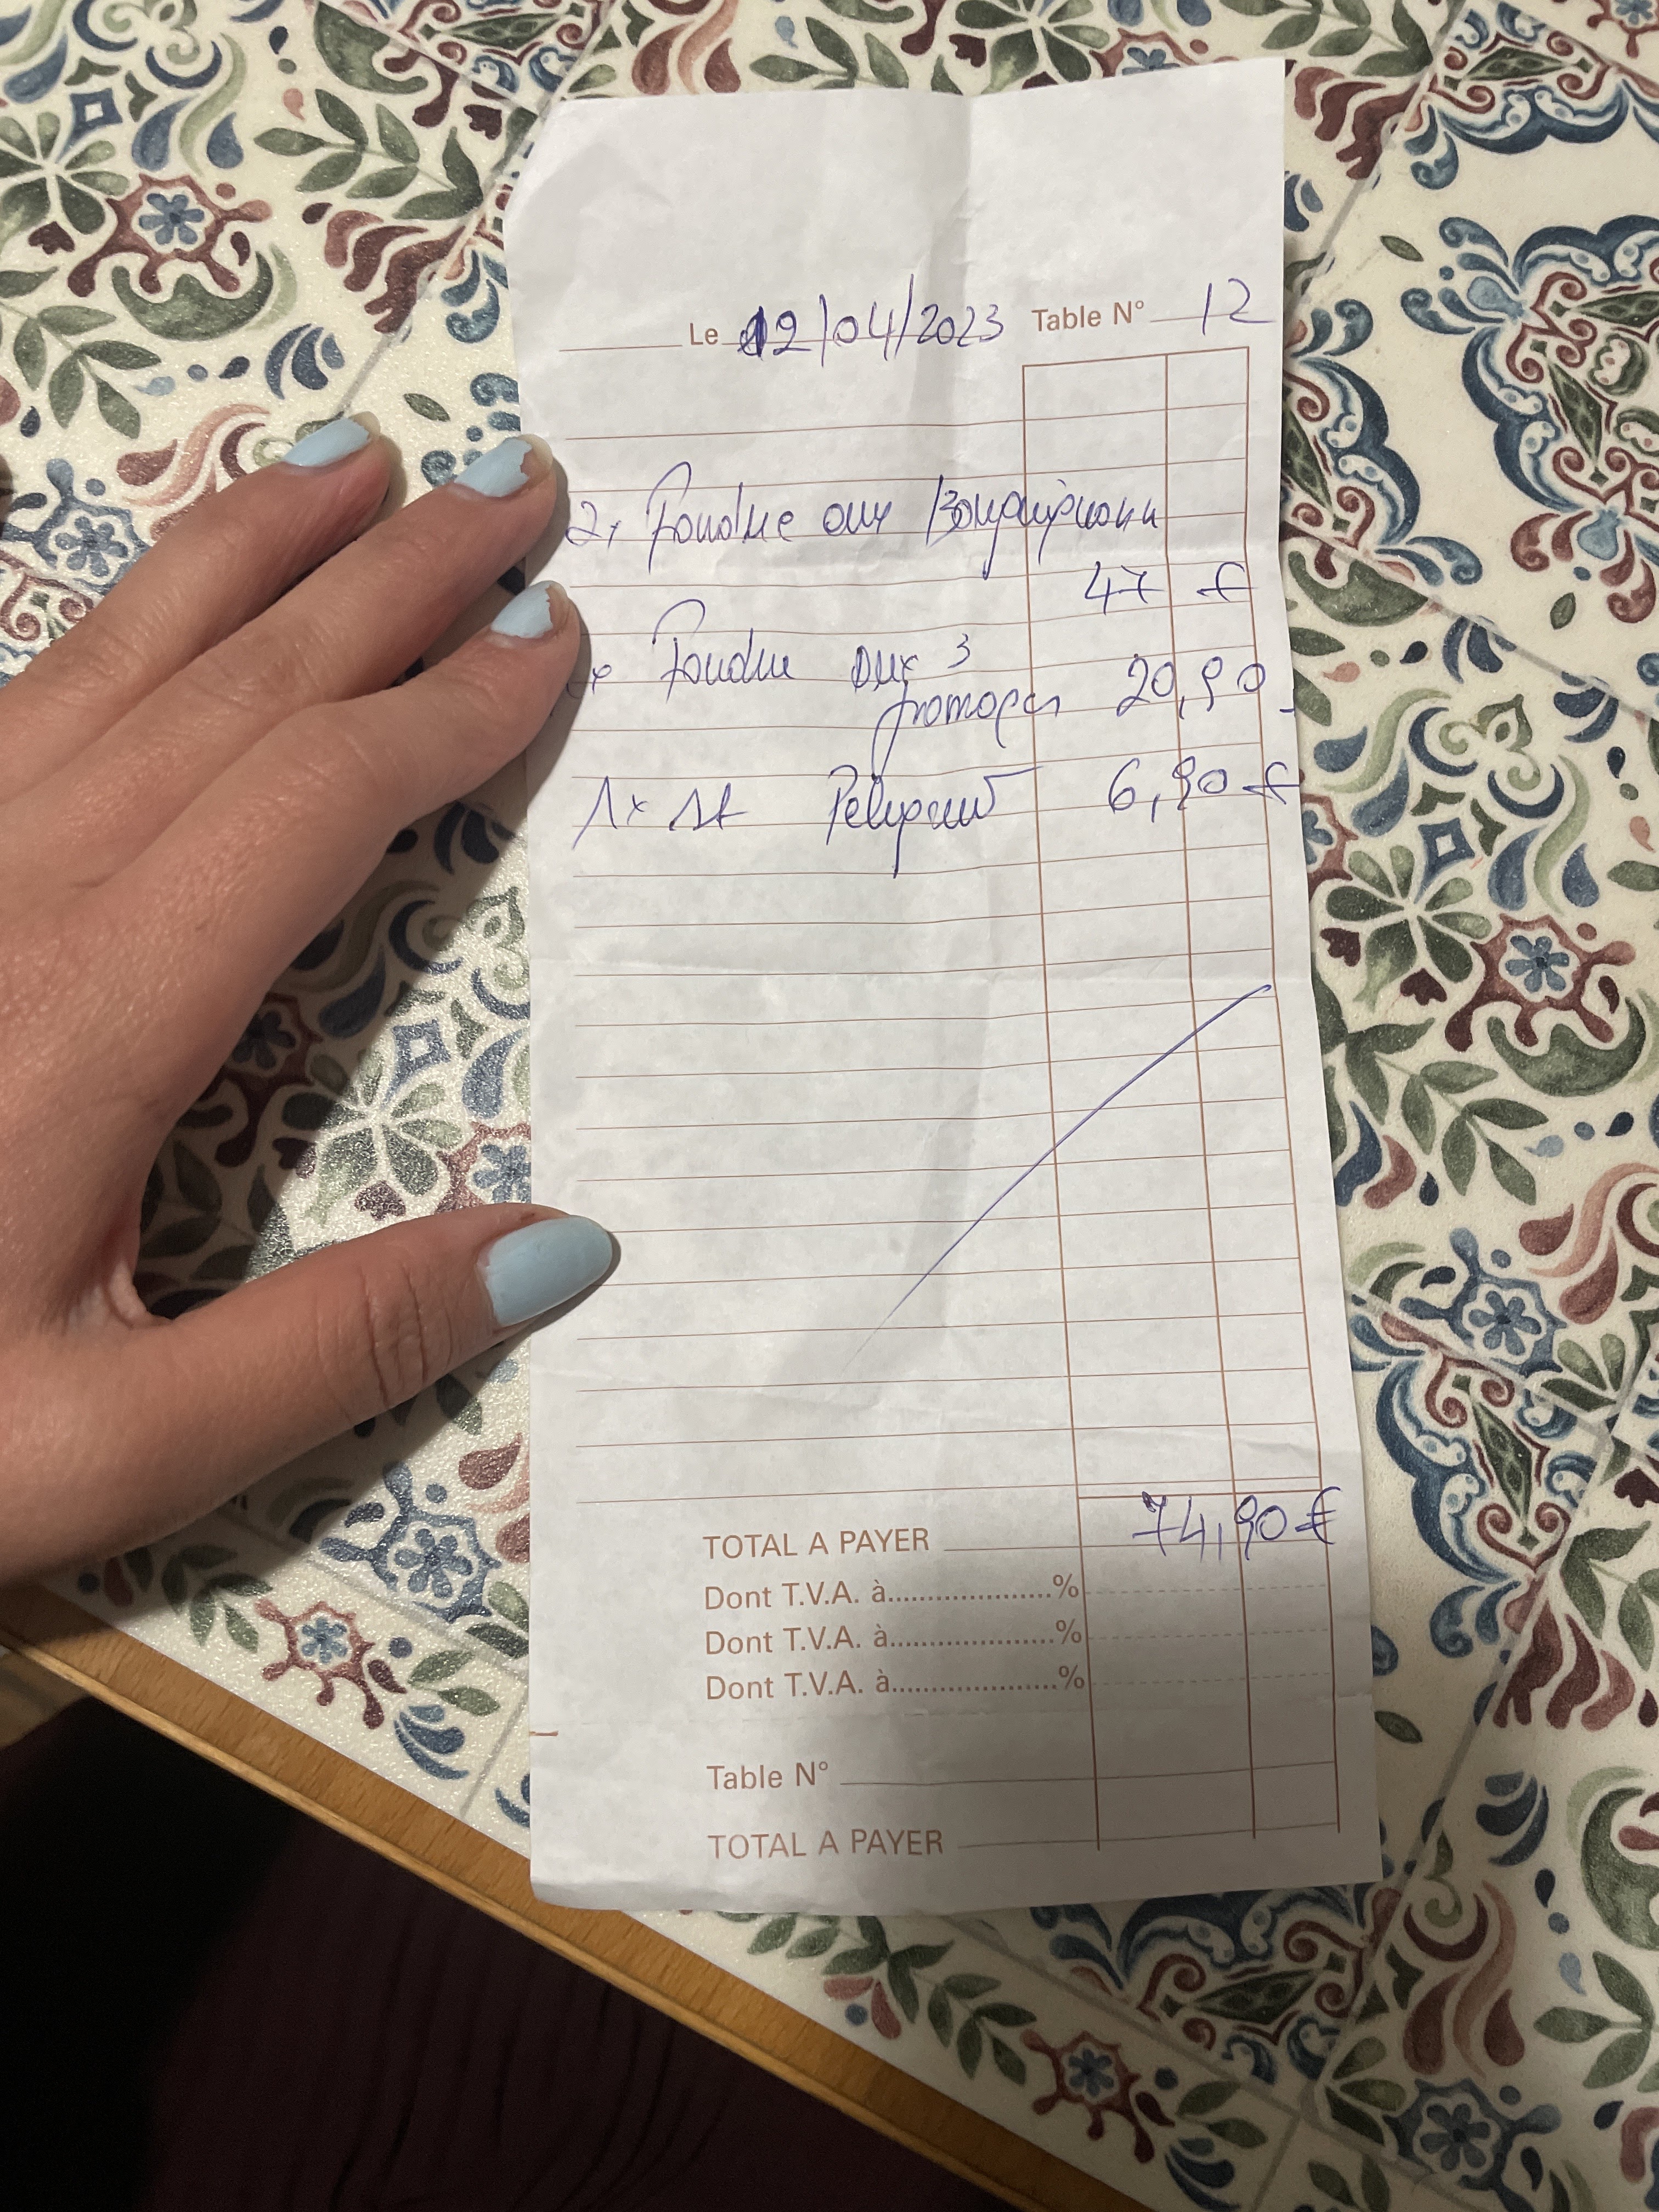 Le 12/04/2023 Table N° 12
2x Fondue
47 €
x Fondue aux 3
fromages 20,90
1x 6,90 €
TOTAL A PAYER 74,90 €
Dont T.V.A. à......................%
Dont T.V.A. à......................%
Dont T.V.A. à......................%
Table N°
TOTAL A PAYER